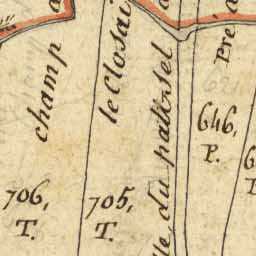 champ
le Closai
du patissel
Pré
646,
P.
706,
T.
705,
T.